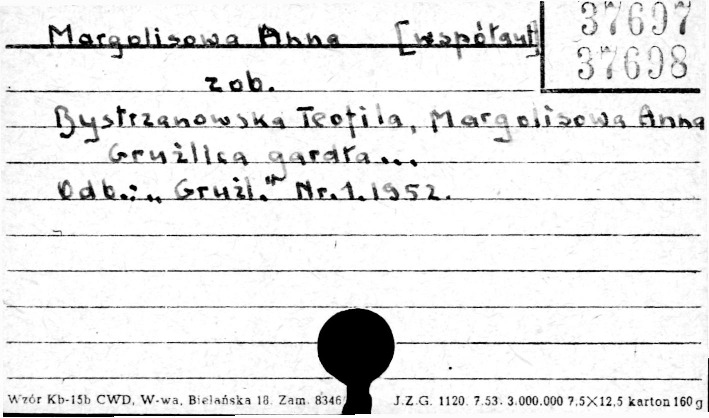 Margolisowa Anna [współaut]
37697
37698
zob.
Bystrzanowska Teofila, Margolisowa Anna
Gruźlica gardła...
Odb.: „Gruźl." Nr.1.1952.
Wzór Kb-15b CWD, W-wa, Bielańska 18. Zam. 8346
J.Z.G. 1120. 7.53. 3.000.000 7,5×12,5 karton 160 g